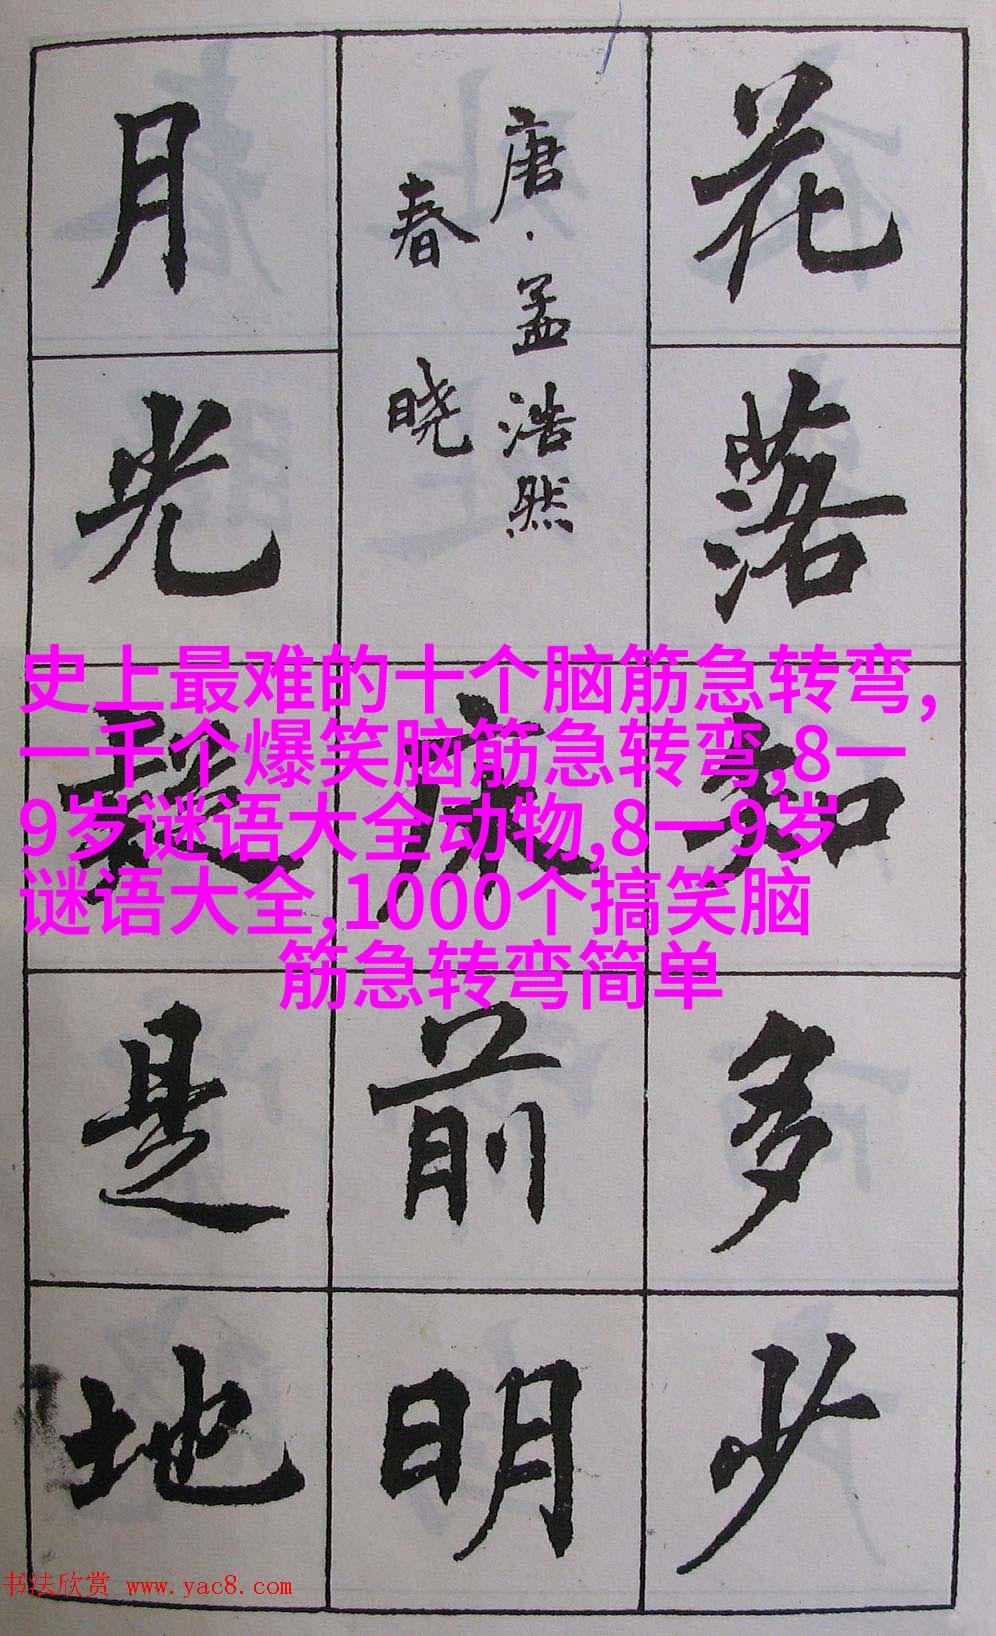 花落知多少
唐·孟浩然
春晓
床前明
月光疑是地
史上最难的十个脑筋急转弯,
一千个爆笑脑筋急转弯,8一
9岁谜语大全动物,8一9岁
谜语大全,1000个搞笑脑
筋急转弯简单
书法欣赏 www.yac8.com